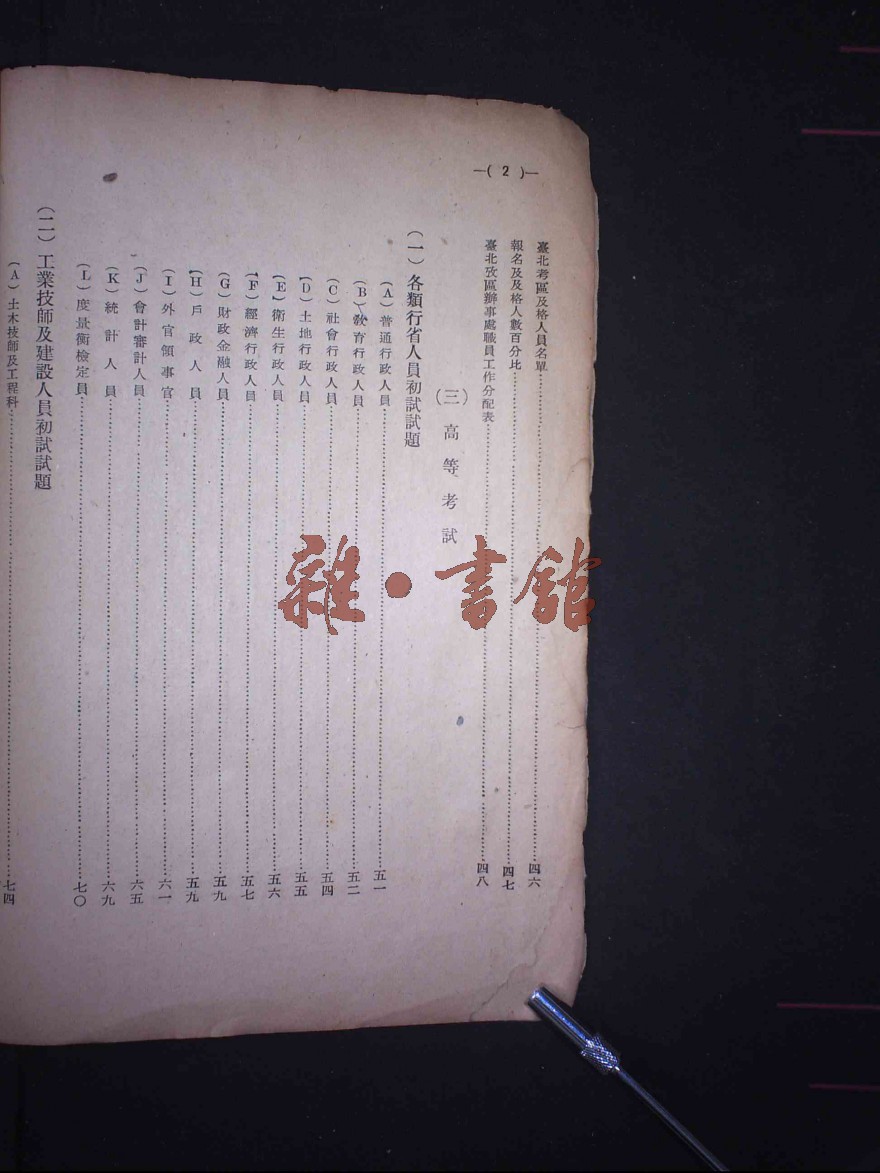 —( 2 )—
臺北考區及格人員名單……四六
報名及及格人數百分比……四七
臺北攷區辦事處職員工作分配表……四八
(三) 高等考試
(一) 各類行省人員初試試題
(A) 普通行政人員……五一
(B) 敎育行政人員……五二
(C) 社會行政人員……五四
(D) 土地行政人員……五五
(E) 衛生行政人員……五六
(F) 經濟行政人員……五七
(G) 財政金融人員……五九
(H) 戶政人員……五九
(I) 外官領事官……六一
(J) 會計審計人員……六五
(K) 統計人員……六九
(L) 度量衡檢定員……七〇
(二) 工業技師及建設人員初試試題
(A) 土木技師及工程科……七四
雜·書館